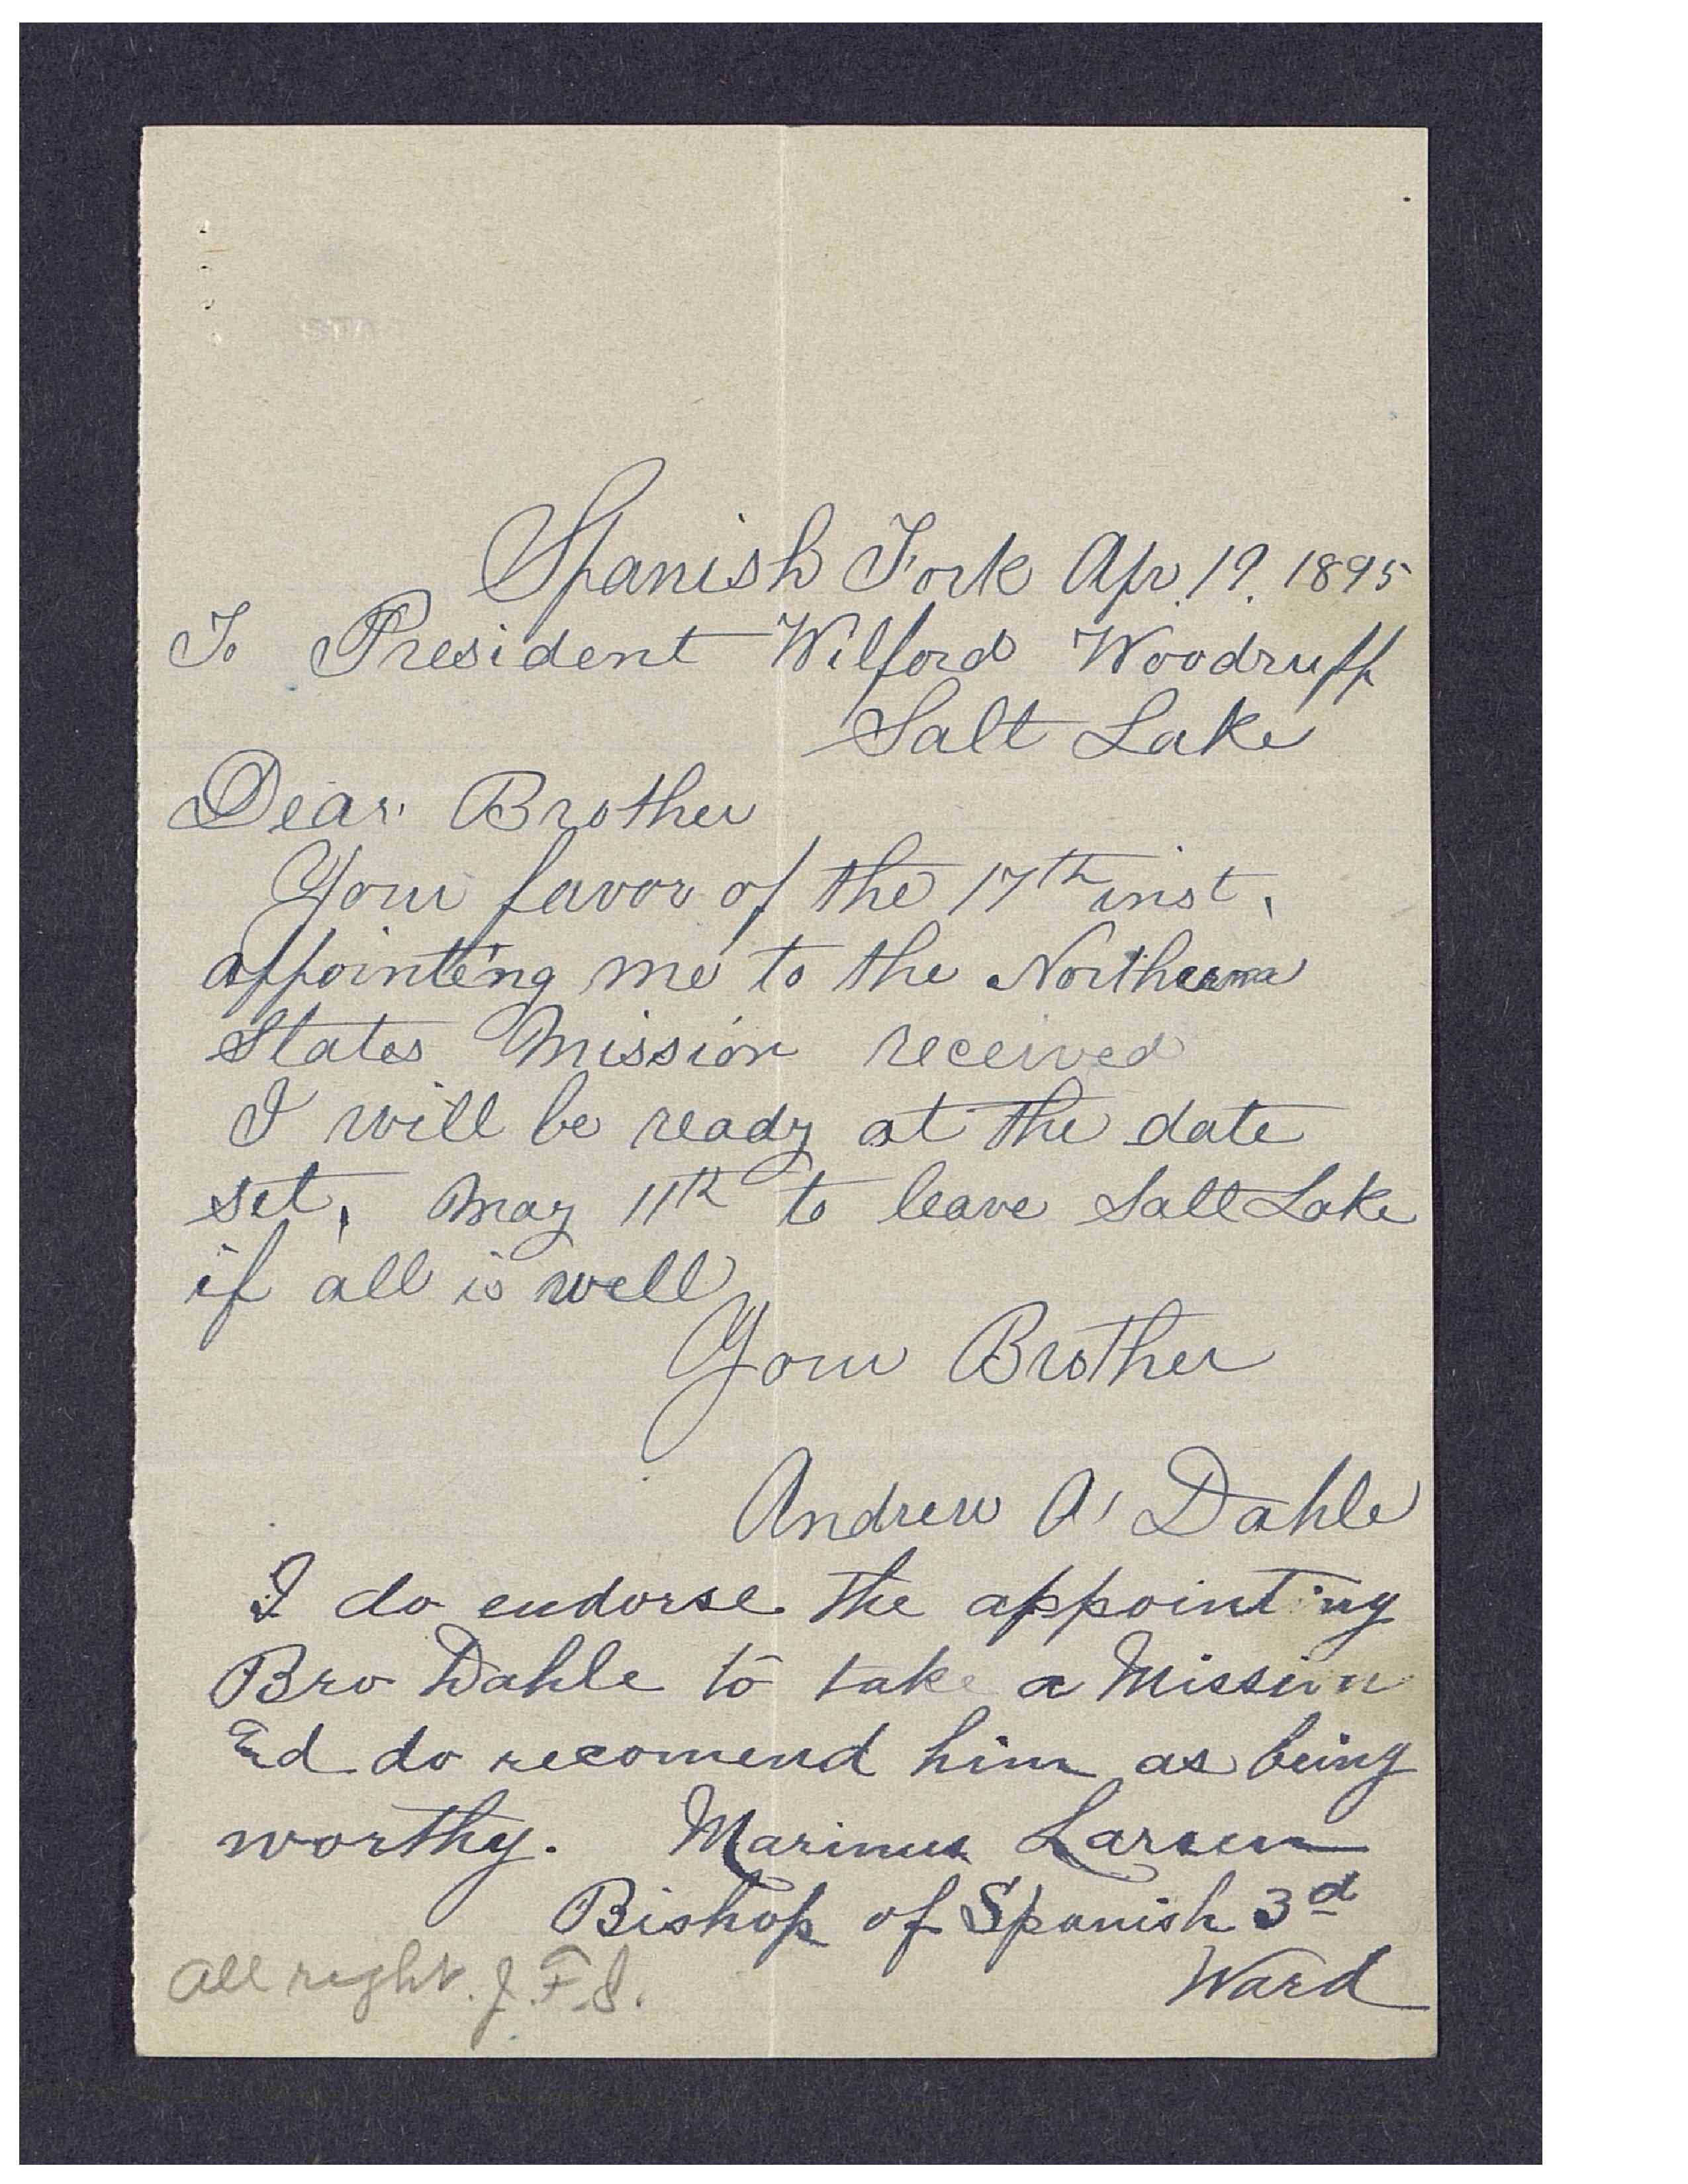 Spanish Fork Apr. 19. 1895
To President Wilford Woodruff
Salt Lake
Dear Brother
Your favor of the 17th inst,
appointing me to the Northern
States Mission received
I will be ready at the date
set, May 11th to leave Salt Lake
if all is well
Your Brother
Andrew A, Dahle
I do endorse the appointing
Bro Dahle to take a Mission
and do recomend him as being
worthy. Marinus Larsen
Bishop of Spanish 3d
Ward
All right. J. F. S.